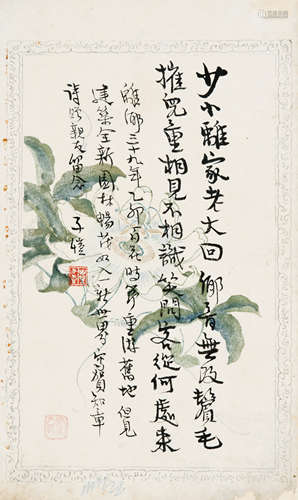 少小離家老大回鄉音無改鬢毛
摧兒童相見不相識笑問客從何處來
離鄉三十九年乙卯百花時節重游舊地但見
建築全新園林暢茂如入一新世界寫賀知章
詩贈親友留念 子愷